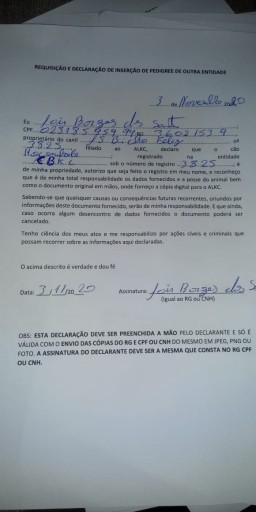 REQUISIÇÃO E DECLARAÇÃO DE INSERÇÃO DE PEDIGREE DE OUTRA ENTIDADE
3 de Novembro 2020
Eu Borges dos
CPF
proprietário do canil nº
3825 filiado ao ALKC, declaro que o cão
registrado na entidade
CBKC sob o número de registro 3825, é
de minha propriedade, autorizo que seja feito o registro em meu nome, e reconheço
que é de minha total responsabilidade os dados fornecidos e a posse do animal bem
como o documento original em mãos, onde forneço a cópia digital para o ALKC.
Sabendo-se que quaisquer causas ou consequências futuras recorrentes, oriundo por
informações deste documento fornecido, serão de minha responsabilidade. E que ainda,
caso ocorra algum desencontro de dados fornecidos o documento poderá ser
cancelado.
Tenho ciência dos meus atos e me responsabilizo por ações cíveis e criminais que
possam recorrer sobre as informações aqui declaradas.
O acima descrito é verdade e dou fé
Data: 3/11/2020 Assinatura: Borges dos S
(Igual ao RG ou CNH)
OBS: ESTA DECLARAÇÃO DEVE SER PREENCHIDA A MÃO PELO DECLARANTE E SÓ É
VÁLIDA COM O ENVIO DAS CÓPIAS DO RG E CPF OU CNH DO MESMO EM JPEG, PNG OU
FOTO. A ASSINATURA DO DECLARANTE DEVE SER A MESMA QUE CONSTA NO RG CPF
OU CNH.